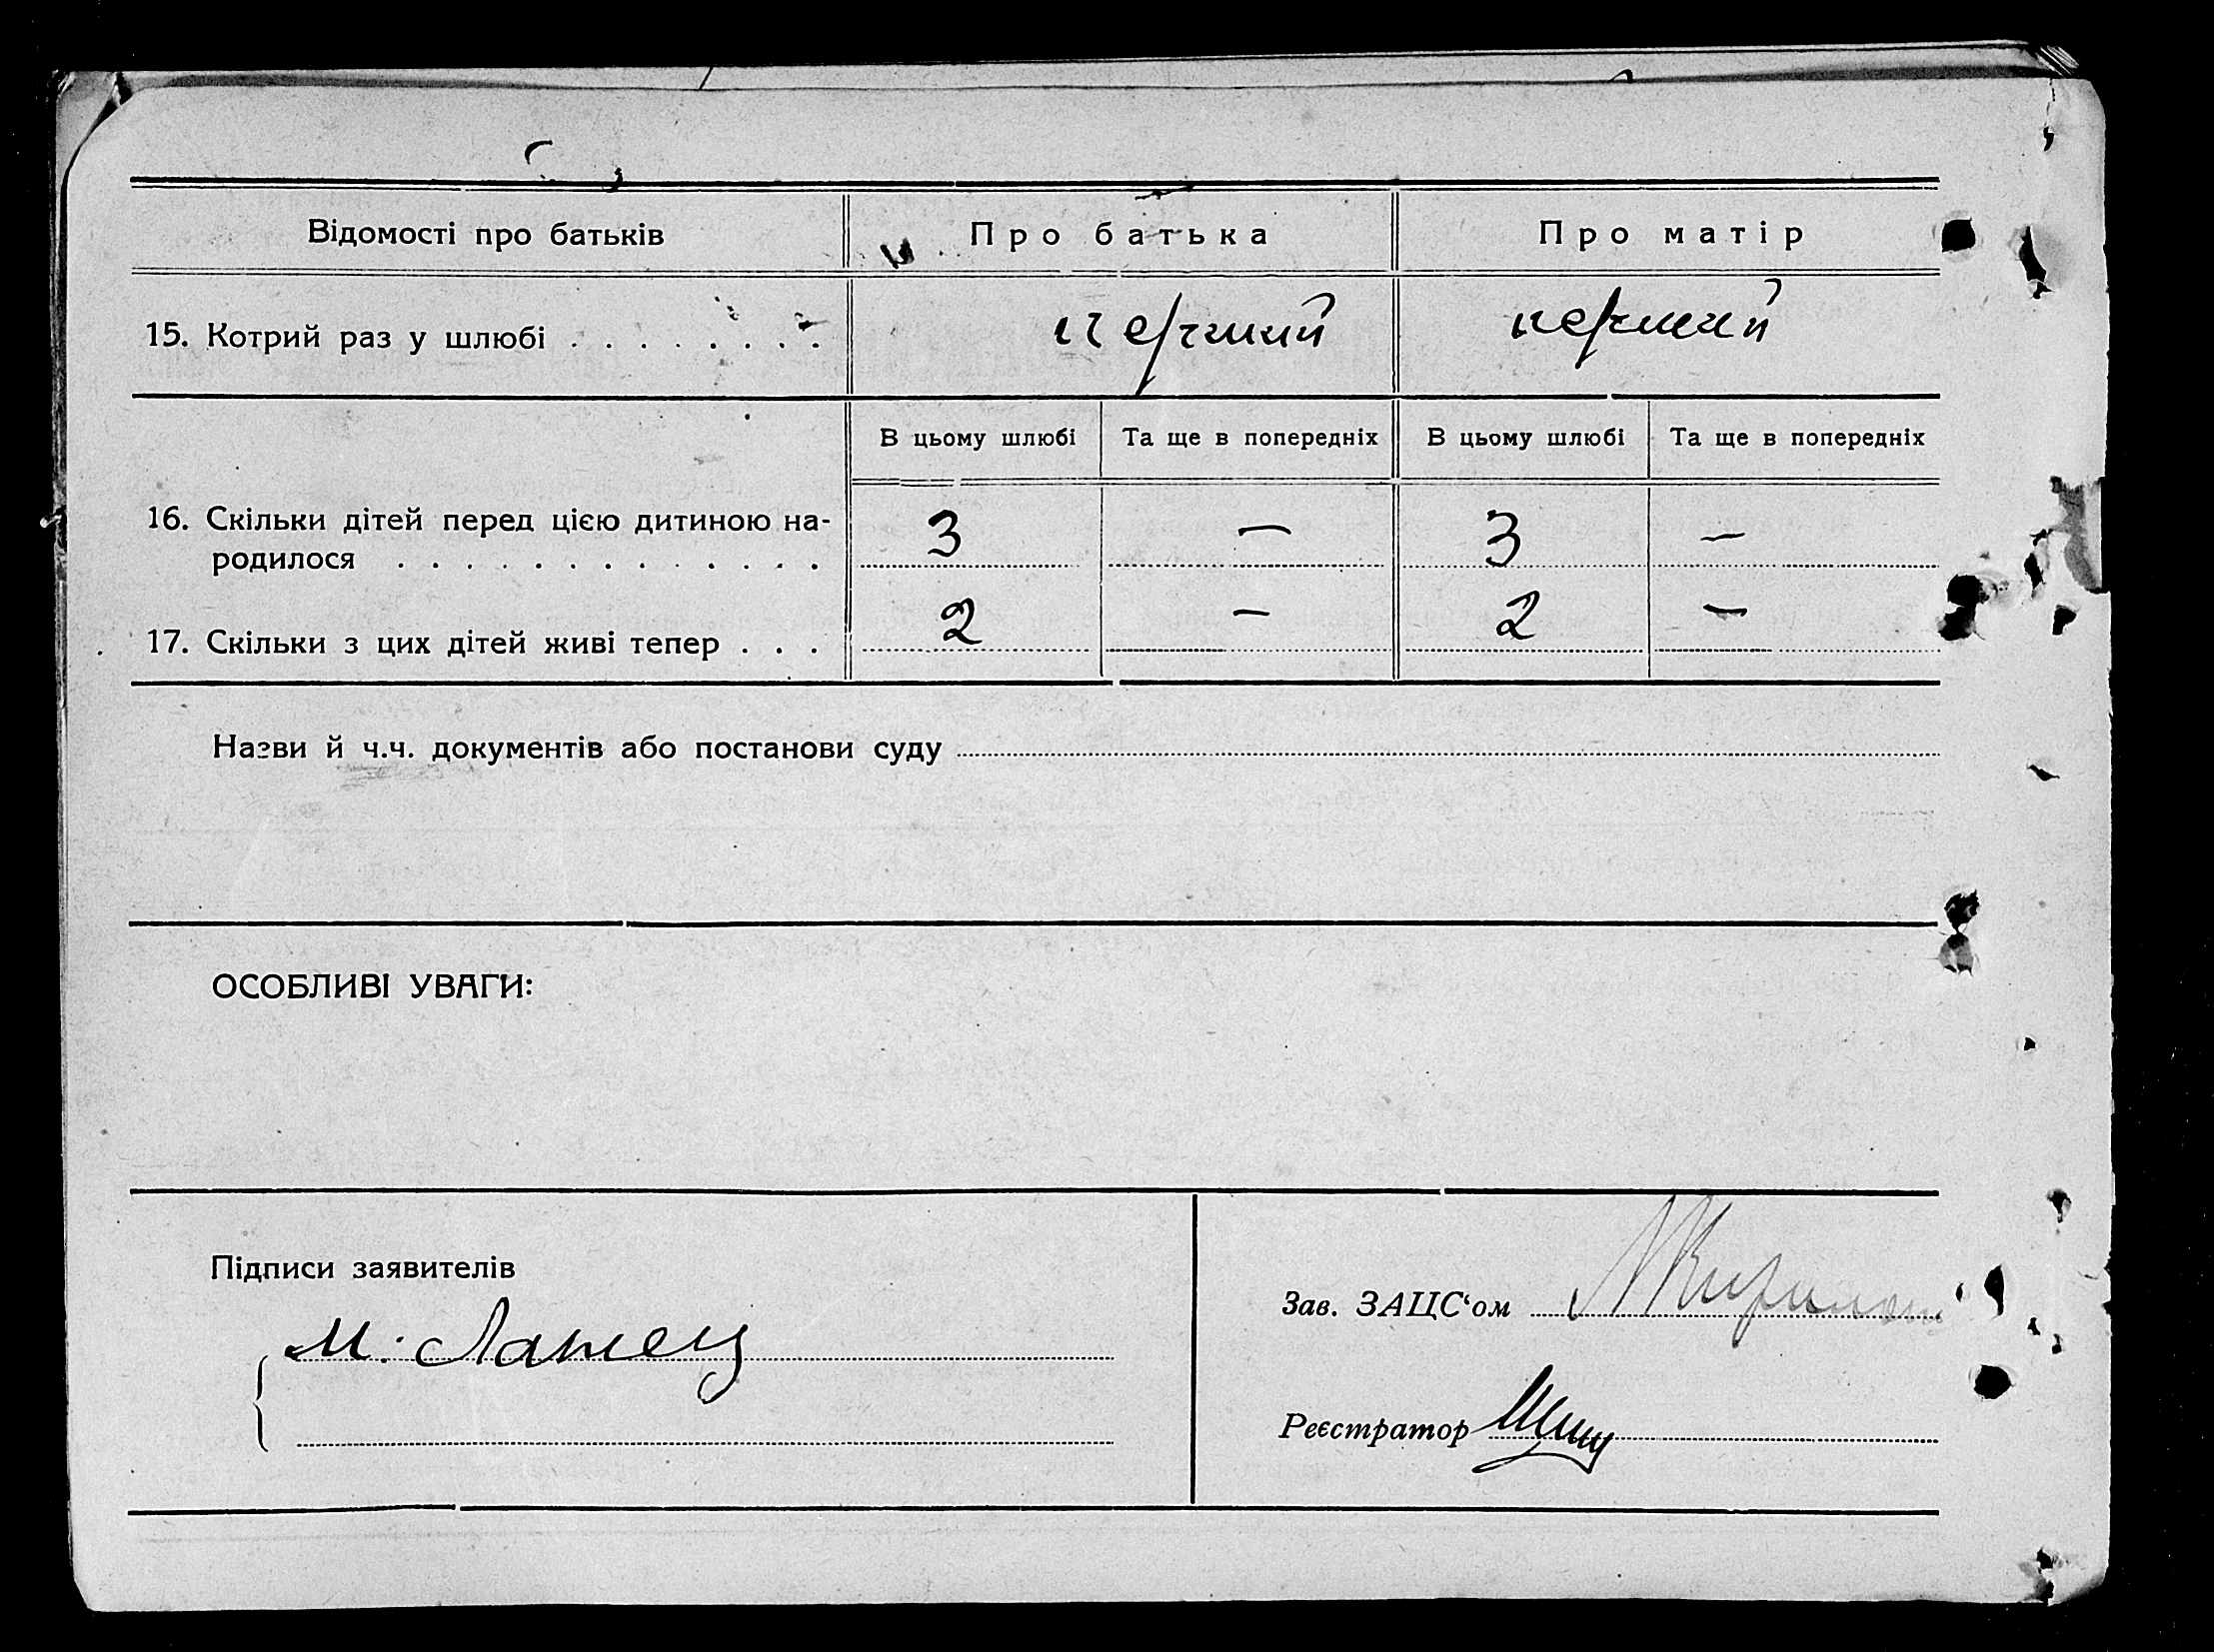 Відомості про батьків Про батька Про матір
15. Котрий раз у шлюбі . . . . . . . . перший перший
В цьому шлюбі Та ще в попередніх В цьому шлюбі Та ще в попередніх
16. Скільки дітей перед цією дитиною на-
родилося . . . . . . . . . . . . . 3 — 3 —
17. Скільки з цих дітей живі тепер . . . 2 — 2 —
Назви й ч.ч. документів або постанови суду
ОСОБЛИВІ УВАГИ:
Підписи заявителів
М.
Зав. ЗАЦС‘ом
Реєстратор